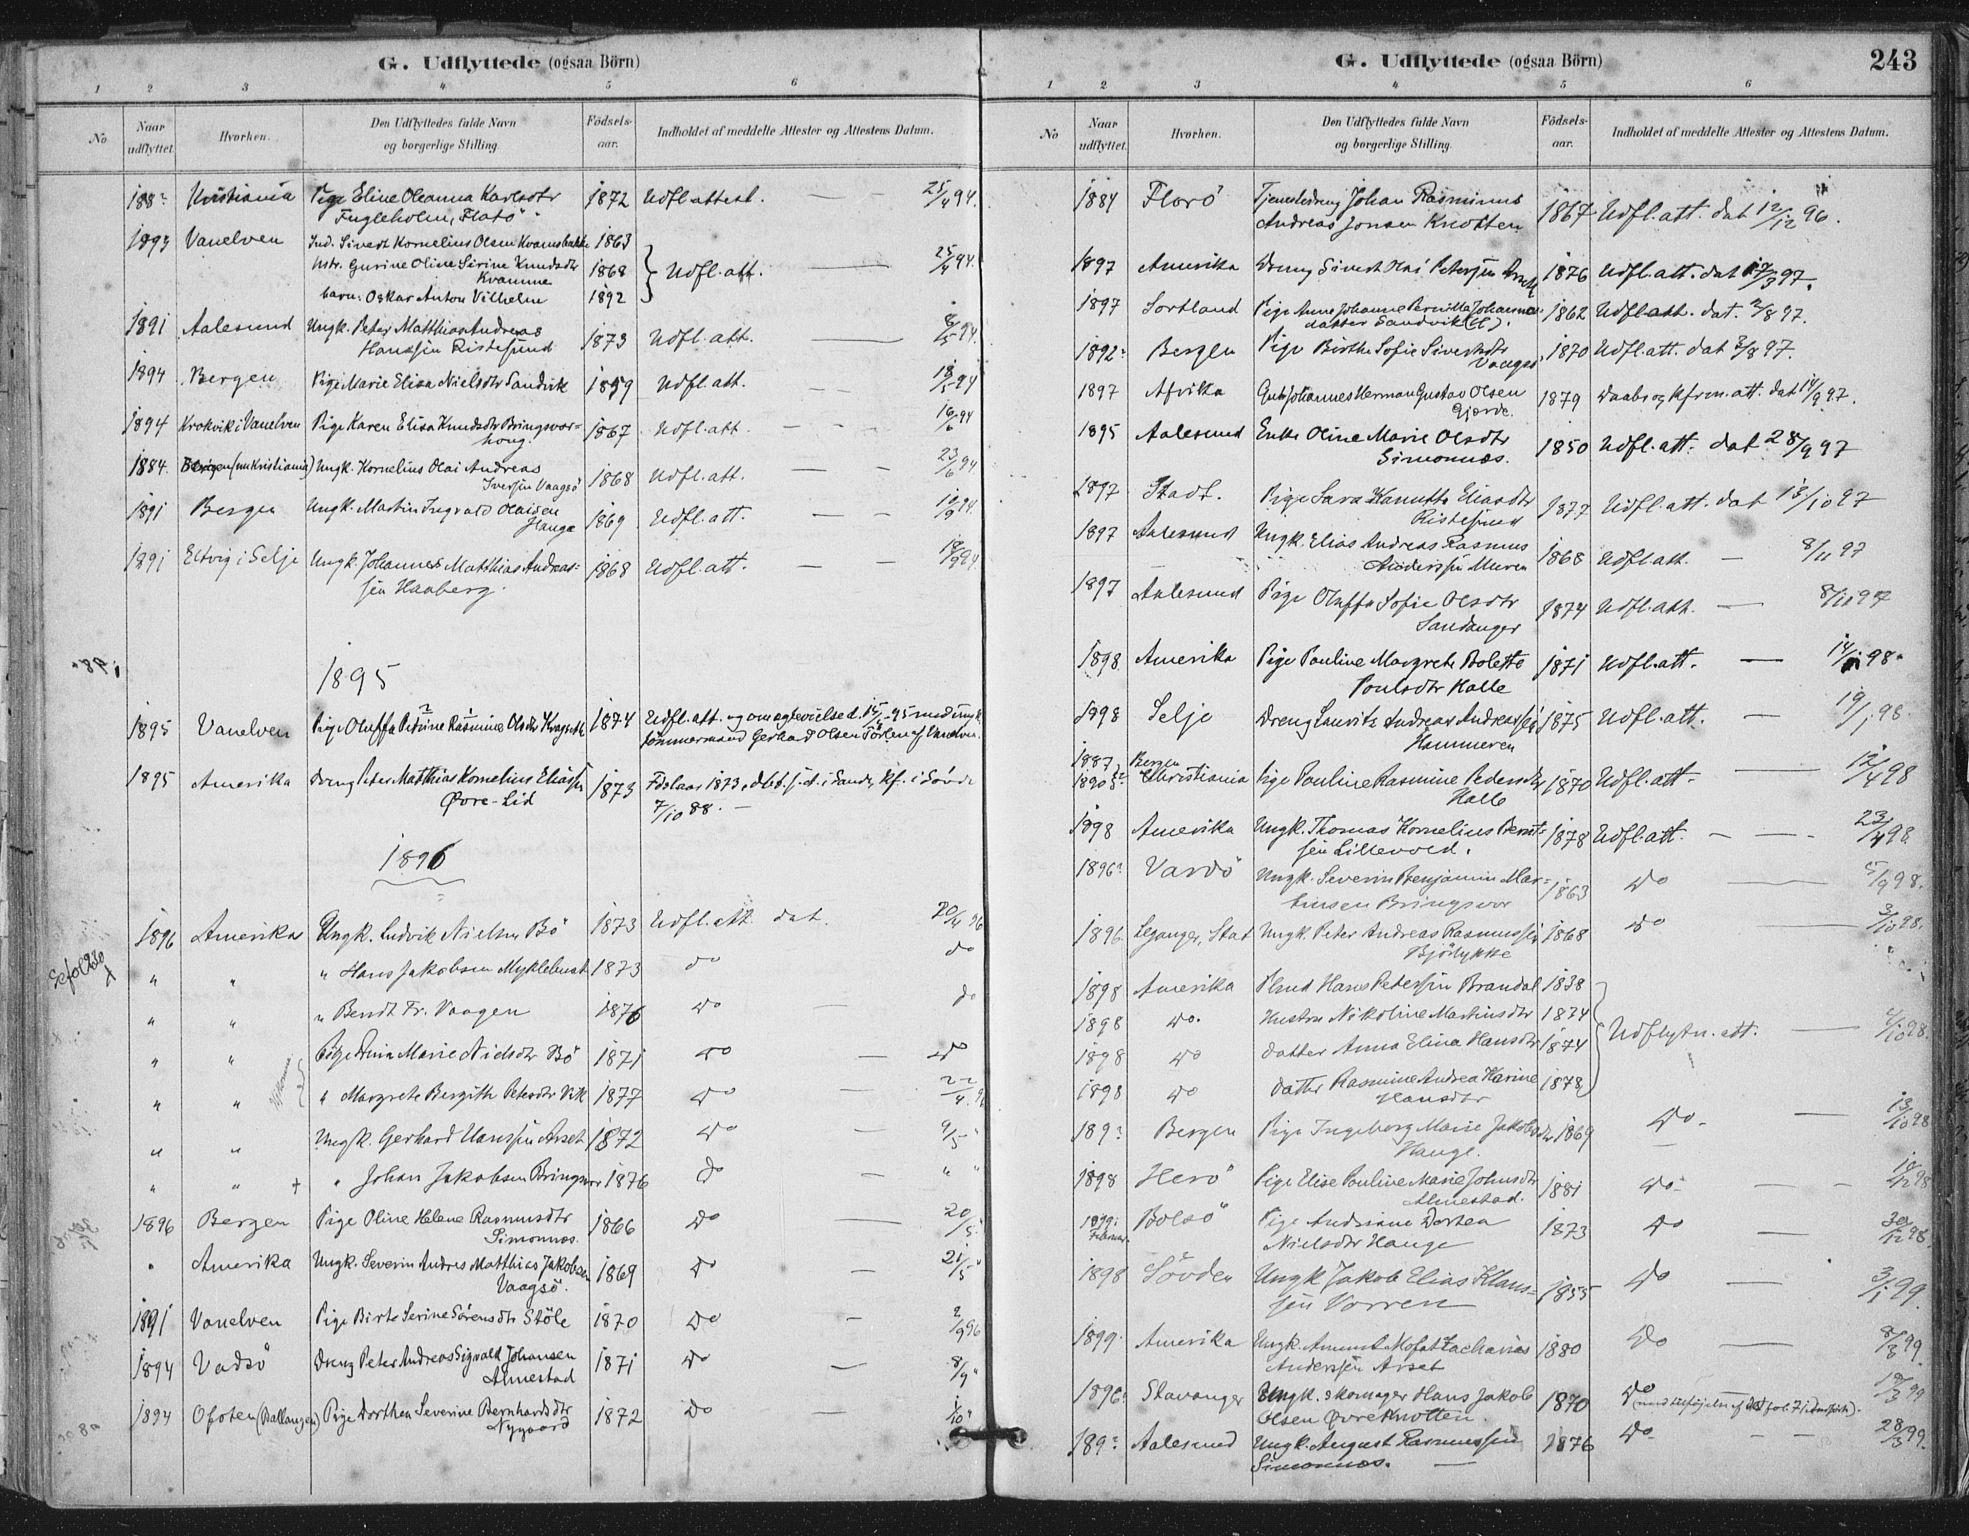 G. Udflyttede (ogsaa Börn)
1 2 3 4 5 6
No Naar udflyttet Hvorhen. Den Udflyttedes fulde Navn og borgerlige Stilling. Fødsels-aar. Indholdet af meddelte Attester og Attestens Datum.
188? Kristiania Pige Eline Oleanna Karlsdtr 1872 Udfl. attest. — — 25/4 94.
Fugleholm, Flatö
1893 Vanelven Ind. Sivert Kornelius Olsen Kvamsbakke 1863
Hstr. Gurine Oline Serine Knudsdtr 1868 Udfl. att. — 25/4 94.
Kvamme
barn: Oskar Anton Vilhelm 1892
1891 Aalesund Ungk. Peter Matthias Andreas
Hanssen Ristesund 1873 Udfl. att. — 94.
1894 Bergen Pige Marie Elisa Nielsdtr Sandvik 1859 Udfl. att. — 18/5 94
1894 Krokvik i Vanelven Pige Karen Elisa Knudsdtr Bringsvor-
houg. 1867 Udfl. att. — 16/6 94
1884 Bergen (nu Kristiania) Ungk. Kornelius Olai Andreas
Iversen Vaagsö 1868 Udfl. att. — — 23/6 94
1891 Bergen Ungk. Martin Ingvald Olaisen
Hauge 1869 Udfl. att. — — 12/9 94
1891 Eltvig i Selje Ungk. Johannes Matthias Andreas-
sen Haaberg. 1868 Udfl. att. — — 18/9 94
1895
1895 Vanelven Pige Oluffa Petrine Rasmine Olsdtr Kragseth 1874 Udfl. att. og omagtevielse d. 15/5 95 med ungk.
tömmermand Gerhard Olsen af Vanelven.
1895 Amerika Dreng Peter Matthias Kornelius Eliassen
Øvre-Lid 1873 Fdslaar 1873, döbt s. å. i Sande, kf. i Sövde
7/10 88. —
1896
1896 Amerika Ungk. Ludvik Nielsen Bö 1873 Udfl. att. dat. 20/4 96
" " " Hans Jakobsen Myklebust 1873 do do
" " " Bendt Fr. Vaagen 1876 Do — do
" " Pige Anna Marie Nielsdtr Bö 1871 Do — Do
" " " Margrete Bergithe Petersdtr Vik 1877 Do — 22/4 96
" " Ungk. Gerhard Hanssen Aaset 1872 Do — 9/5 "
" " + " Johan Jakobsen Bringsvor 1876 do — " "
1896 Bergen Pige Oline Helene Rasmusdtr
Simonnæs. 1866 Do — 20/5 "
" Amerika Ungk. Severin Andreas Matthias Jakobsen
Vaagsö. 1869 Do — 21/5 "
1891 Vanelven Pige Birte Serine Sörensdtr Stöle 1870 Do — 2/9 96
1894 Vadsö Dreng Peter Andreas Sigvald Johansen
Almestad 1871 Do — 8/9 "
1894 Ofoten (Ballangen) Pige Dorthea Severine Bernhardsdtr
Nygaard 1872 Do — 1/10 "
G. Udflyttede (ogsaa Börn) 243
1 2 3 4 5 6
No Naar udflyttet. Hvorhen. Den Udflyttedes fulde Navn og borgerlige Stilling. Födsels-aar. Indholdet af meddelte Attester og Attestens Datum.
1884 Florö Tjenestedreng Johan Rasminus
Andreas Jonsen Knotten 1867 Udfl. att. dat 12/12 96.
1897 Amerika Dreng Sivert Olai Petersen 1876 Udfl. att. dat 17/3 97.
1897 Sortland Pige Anne Johanne Pernilla Johannes-
datter Sandvik 1862 Udfl. att. dat. 2/8 97.
1892? Bergen Pige Birthe Sofie Sivertsdtr
Vaagsö 1870 Udfl. att. dat 3/8 97.
1897 Afrika Gut Johannes Herman Gustav Olsen
Gjerde. 1879 Daabs og Kfrm. att. dat 14/9 97.
1895 Aalesund Enke Oline Marie Olsdtr
Simonnæs. 1850 Udfl. att. dat 28/9 97
1897 Stadt. Pige Sara Kanutte Eliasdtr
Ristesund 1877 Udfl. att. dat 18/10 97
1897 Aalesund Ungk. Elias Andreas Rasmus
Andersen Muren 1868 Udfl. att. — 8/11 97
1897 Aalesund Pige Oluffa Sofie Olsdtr
Sandanger 1874 Udfl. att. — 8/11 97
1898 Amerika Pige Pauline Margrete Bolette
Poulsdtr Halle 1871 Udfl. att. — 14/1 98.
1898 Selje Dreng Lauritz Andreas Andreassen
Hammeren 1875 Udfl. att. — 19/1 98.
1887, Bergen
1890 Christiania Pige Pauline Rasmine Pedersdtr
Halle 1870 Udfl. att. — 12/4 98
1898 Amerika Ungk. Thomas Kornelius Bernt-
sen Lillevold. 1878 Udfl. att. — — 23/4 98.
1896? Vardö Ungk. Severin Benjamin Mar-
tinsen Bringsvor 1863 Do — 5/9 98.
1896 Leganger, Stat Ungk. Peter Andreas Rasmussen
Bjölykke 1868 Do — 3/10 98.
1898 Amerika Plmd Hans Petersen Brandal 1838
1898 do. Hustru Nikoline Martinsdtr 1834
1898 do datter Anna Elina Hansdtr 1874 Udflytn. att. — 4/10 98.
1898 do datter Rasmine Andrea Karine
Hansdtr 1878
189? Bergen Pige Ingeborg Marie Jakobsdtr
Hauge. 1869 Do — 13/10 98
1898 Herö Pige Elise Pauline Marie Johnsdtr
Almestad. 1881 Do — — 98
Februar Bolsö Pige Andriane Dortea
Nielsdtr Hauge 1873 Do 30/12 98.
1898 Sövden Ungk. Jakob Elias Klaus-
sen Vorren 1855 Do — 3/1 99.
1899 Amerika Ungk. Zacharias
Anderssen Arset 1880 Do — 8/3 99.
1896? Stavanger Ungk. skomager Hans Jakob
Olsen Øvre Knotten. 1870 Do 18/3 99
189? Aalesund Ungk. August Rasmussen
Simonnæs. — 1876 Do — — 28/3 99.